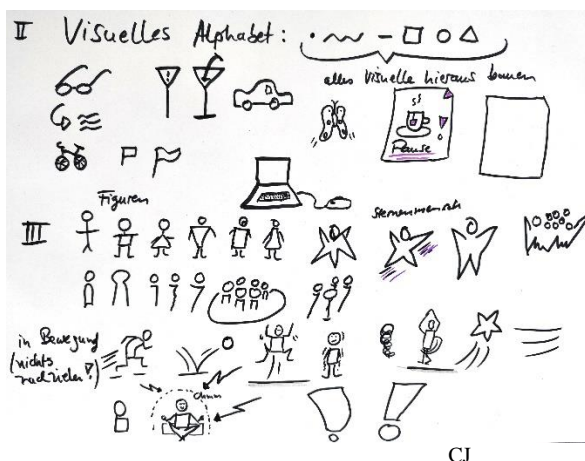 II Visuelles Alphabet:
alles Visuelle hieraus bauen
Pause
Figuren
III
Sternenmensch
in Bewegung
(nichts
nachziehen!)
Ohmm
CJ